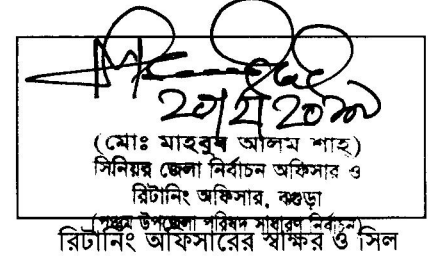 (মোঃ মাহবুব আলম শাহ্)
সিনিয়র জেলা নির্বাচন অফিসার ও
রিটার্নিং অফিসার, বগুড়া
(পঞ্চম উপজেলা পরিষদ সাধারণ নির্বাচন)
রিটার্নিং অফিসারের স্বাক্ষর ও সিল